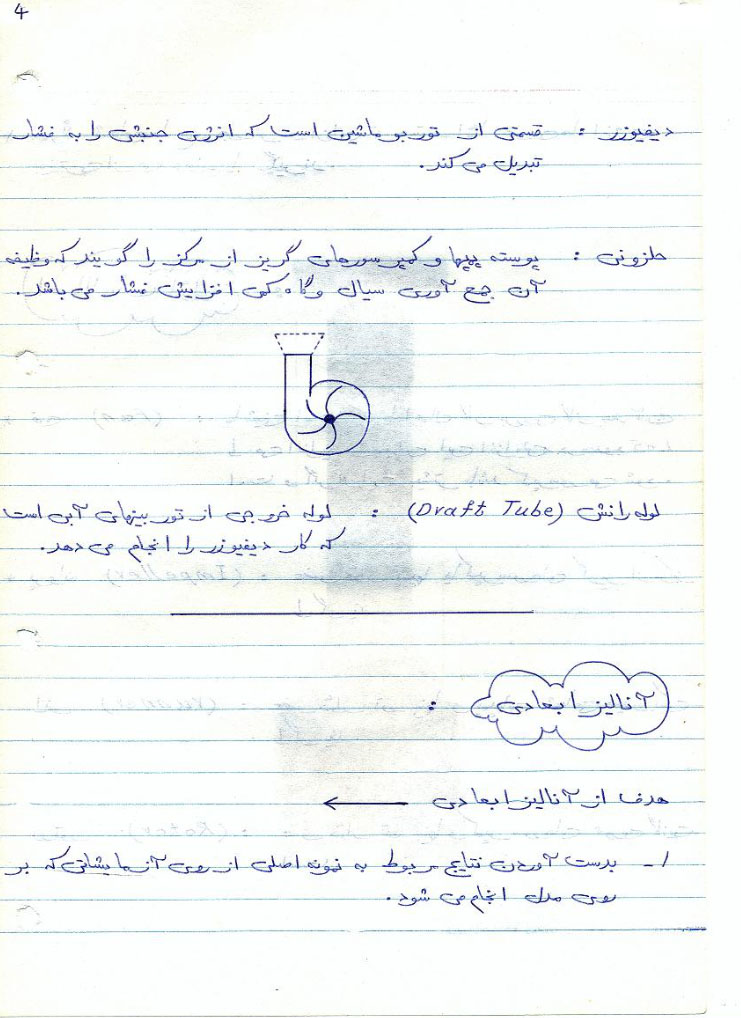 4
دیفیوزر : قسمتی از توربوماشین است که انرژی جنبشی را به فشار
تبدیل می کند.
حلزونی : پوسته پمپها و کمپرسورهای گریز از مرکز را گویند که وظیفه
آن جمع آوری سیال و گاه کمی افزایش فشار می باشد.
لوله رانش (Draft Tube) : لوله خروجی از توربینهای آبی است
که کار دیفیوزر را انجام می دهد.
آنالیز ابعادی :
هدف از آنالیز ابعادی ←
۱- بدست آوردن نتایج مربوط به نمونه اصلی از روی آزمایشاتی که بر
روی مدل انجام می شود.